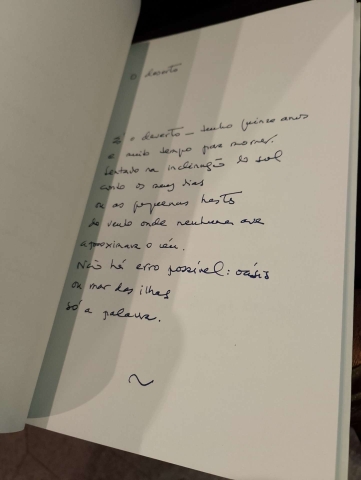 o deserto
é o deserto — tenho quinze anos
e muito tempo para morrer.
Sentado na inclinação do sol
conto os meus dias
ou as pequenas hastes
do vento onde nenhuma ave
aproximava o céu.
Não há erro possível: oásis
ou mar das ilhas
só a palavra.